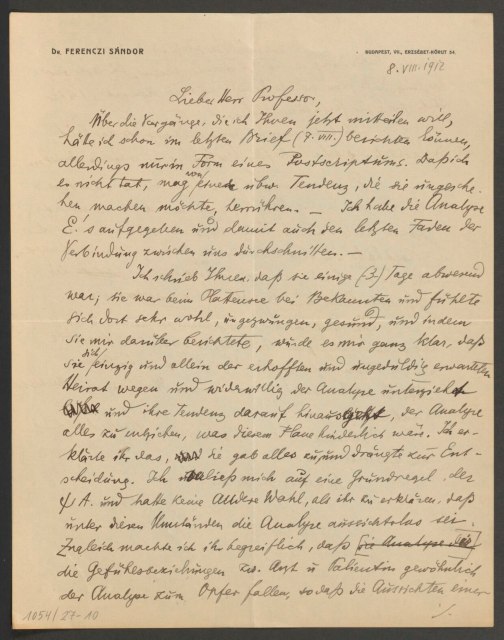 Dr. FERENCZI SÁNDOR
BUDAPEST, VII., ERZSÉBET-KÖRUT 54.
8. VIII. 1912
Lieber Herr Professor,
Über die Vorgänge, die ich Ihnen jetzt mitteilen will,
hätte ich schon im letzten Brief (7. VIII.) berichten können,
allerdings nur in Form eines Postscriptums. Daß ich
es nicht tat, mag von einer ubw. Tendenz, die sie ungesche-
hen machen möchte, herrühren. — Ich habe die Analyse
E.'s aufgegeben und damit auch den letzten Faden der
Verbindung zwischen uns durchschnitten. —
Ich schrieb Ihnen, daß sie einige (3) Tage abwesend
war; sie war beim bei Bekannten und fühlte
sich dort sehr wohl, ungezwungen, gesund, und indem
sie mir darüber berichtete, wurde es mir ganz klar, daß
sie sich einzig und allein der erhofften und ungeduldig erwarteten
Heirat wegen und widerwillig der Analyse unterzieht
und ihre Tendenz darauf hinausgeht, der Analyse
alles zu entziehen, was diesem Plan hinderlich wäre. Ich er-
klärte ihr das, sie gab alles zu und drängte zur Ent-
scheidung. Ich verließ mich auf eine Grundregel der
ψA. und hatte keine andere Wahl, als ihr zu erklären, daß
unter diesen Umständen die Analyse aussichtslos sei.
Zugleich machte ich ihr begreiflich, daß [die Analyse die]
die Gefühlsbeziehungen zw. Arzt u. Patientin gewöhnlich
der Analyse zum Opfer fallen, so daß die Aussichten einer
./.
1054/27-10